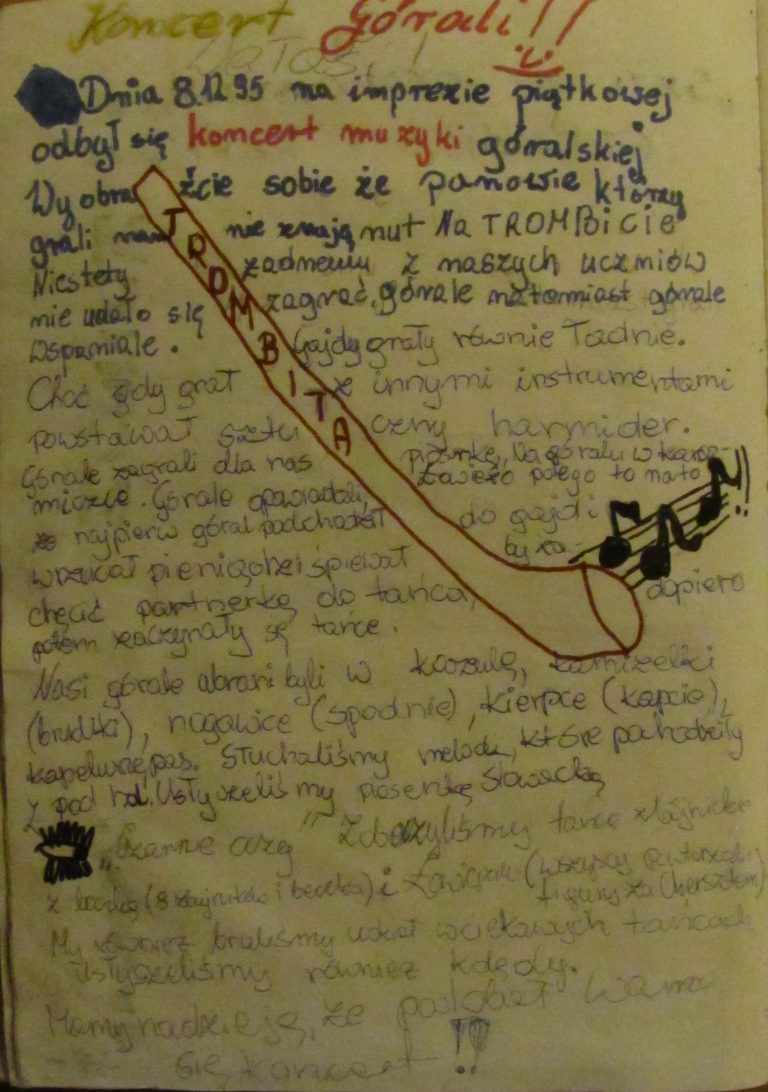 Koncert Górali!!
Dnia 8.12 95 na imprezie piątkowej
odbył się koncert muzyki góralskiej
Wyobraźcie sobie że panowie którzy
grali nam nie znają nut Na TROMBiCiE
Niestety żadnemu z naszych uczniów
nie udało się zagrać, górale natomiast górale
wspaniale. Gajdy grały równie Ładnie.
Choć gdy grał z innymi instrumentami
powstawał sztuczny harmider.
Górale zagrali dla nas piosnkę,
miczcie. Górale opowiadali,
że najpierw góral podchodził do gajd i
wrzucał pieniążek i śpiewał by za-
chęcić partnerkę do tańca, dopiero
potem zaczynały się tańce.
TROMBITA
Nasi górale ubrani byli w koszulę, kamizelki
(brucliki), nogawice (spodnie), kierpce (kapcie),
kapelusz, pas. Słuchaliśmy melodii, które pochodziły
z pod hal. Usłyszeliśmy piosenkę słowacką
"Czarne oczy" Zobaczyliśmy tańce zbójnickie
z beczką (8 zbójników i beczka) i (wszyscy powtarzali
figury za Chersztem)
My również braliśmy udział w ciekawych tańcach
Usłyszeliśmy również kolędy.
Mamy nadzieję, że podobał wam
się koncert !!